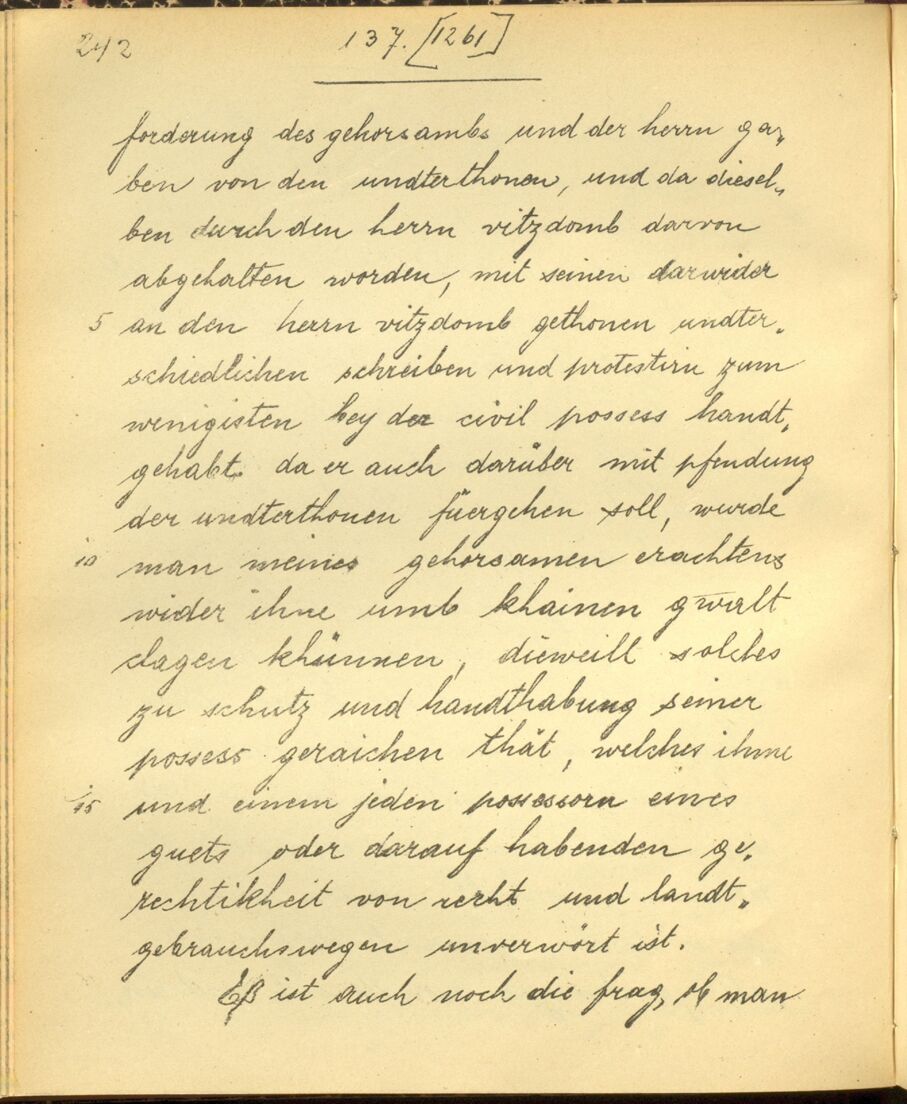 242
137. [1261]
forderung des gehorsambs und der herrn ga„
ben von den undterthonen, und da diesel„
ben durch den herrn vitzdomb darvon
abgehalten worden, mit seinen darwider
5 an den herrn vitzdomb gethonen undter„
schiedlichen schreiben und protestirn zum
wenigisten bey der civil possess handt„
gehabt. da er auch darüber mit pfendung
der undterthonen füergehen soll, wurde
10 man meines gehorsamen erachtens
wider ihne umb khainen gwalt
clagen khünnen, dieweill solches
zu schutz und handthabung seiner
possess geraichen thät, welches ihme
15 und einem jeden possessorn eines
guets oder darauf habenden ge„
rechtikheit von recht und landt„
gebrauchswegen unverwört ist.
Eß ist auch noch die frag, ob man